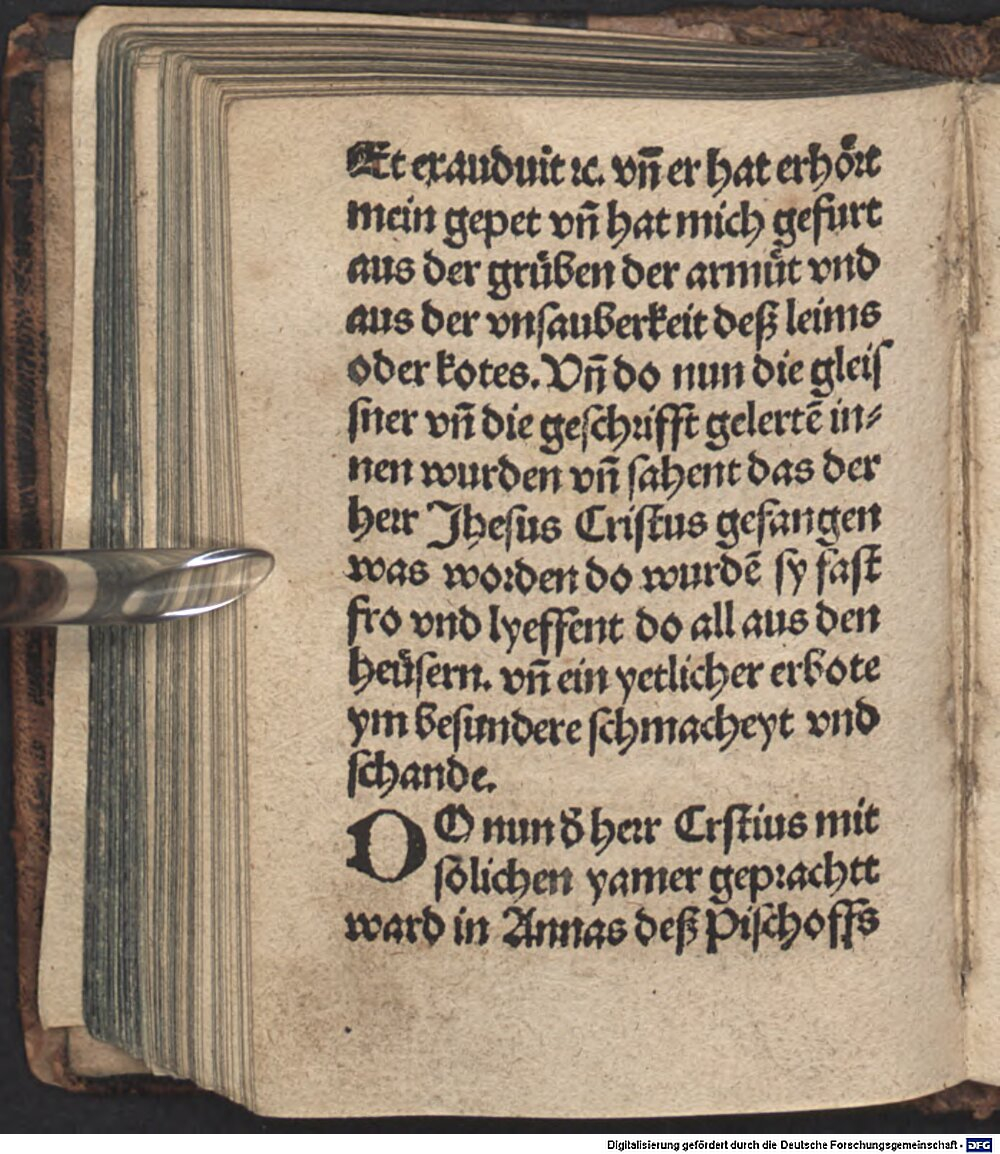 Et exauduit ⁊c. vn̄ er hat erhoͤꝛt
mein gepet vn̄ hat mich gefurt
aus der gruͤben der armuͤt vnd
aus der vnſauberkeit deß leims
oder kotes. Vn̄ do nun die gleiſ
ſner vn̄ die geſchꝛifft gelertē in⸗
nen wurden vn̄ ſahent das der
herꝛ Jheſus Criſtus gefangen
was woꝛden do wurdē ſy faſt
fro vnd lyeffent do all aus den
heuͤſern. vn̄ ein yetlicher erbote
ym beſundere ſchmacheyt vnd
ſchande.
DO nun d̄ herꝛ Crſtius mit
ſoͤlichen yamer gepꝛachtt
ward in Annas deß Piſchoffs
Digitalisierung gefördert durch die Deutsche Forschungsgemeinschaft - DFG